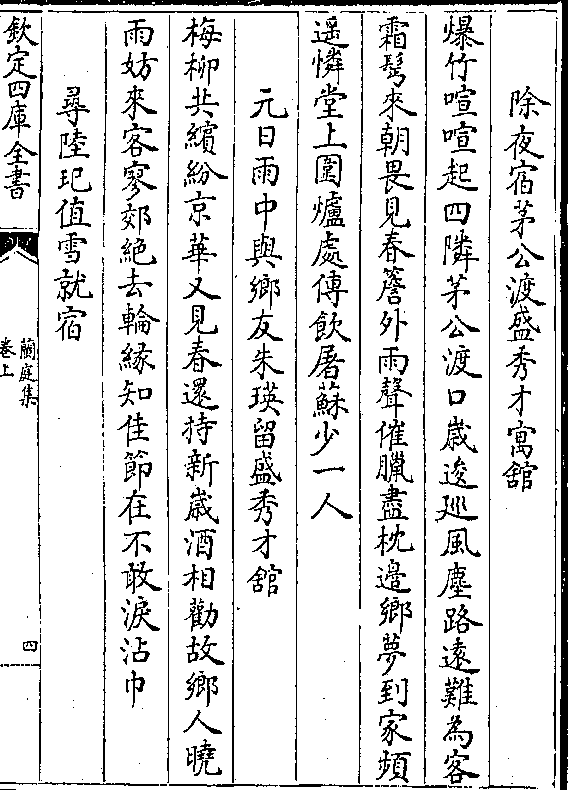 除夜宿茅公渡盛秀才寓舘
爆竹喧喧起四隣茅公渡口歳逡廵風塵路遠難為客
霜髩來朝畏見春簷外雨聲催臘盡枕邉鄉夢到家頻
遥憐堂上圍爐處傳飲屠蘇少一人
元日雨中與鄉友朱瑛留盛秀才舘
梅柳共繽紛京華又見春還持新歳酒相勸故鄉人曉
雨妨來客寥郊絶去輪縁知佳節在不敢淚沾巾
尋陸玘值雪就宿
欽定四庫全書
蘭庭集
卷上
四